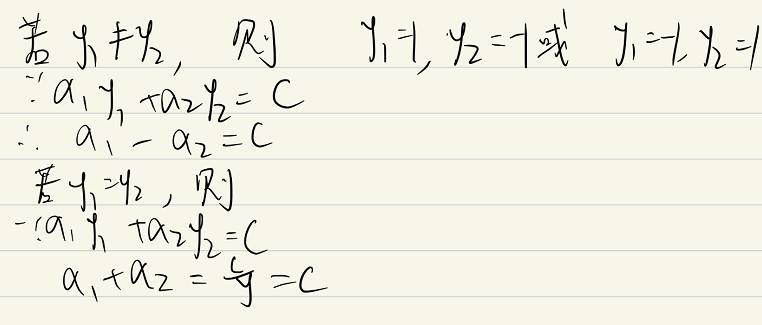 若 y₁≠y₂, 则 y₁=1, y₂=-1或 y₁=-1, y₂=1
∵ α₁y₁+α₂y₂=C
∴ α₁-α₂=C
若y₁=y₂, 则
∵α₁y₁+α₂y₂=C
α₁+α₂=C/y=C